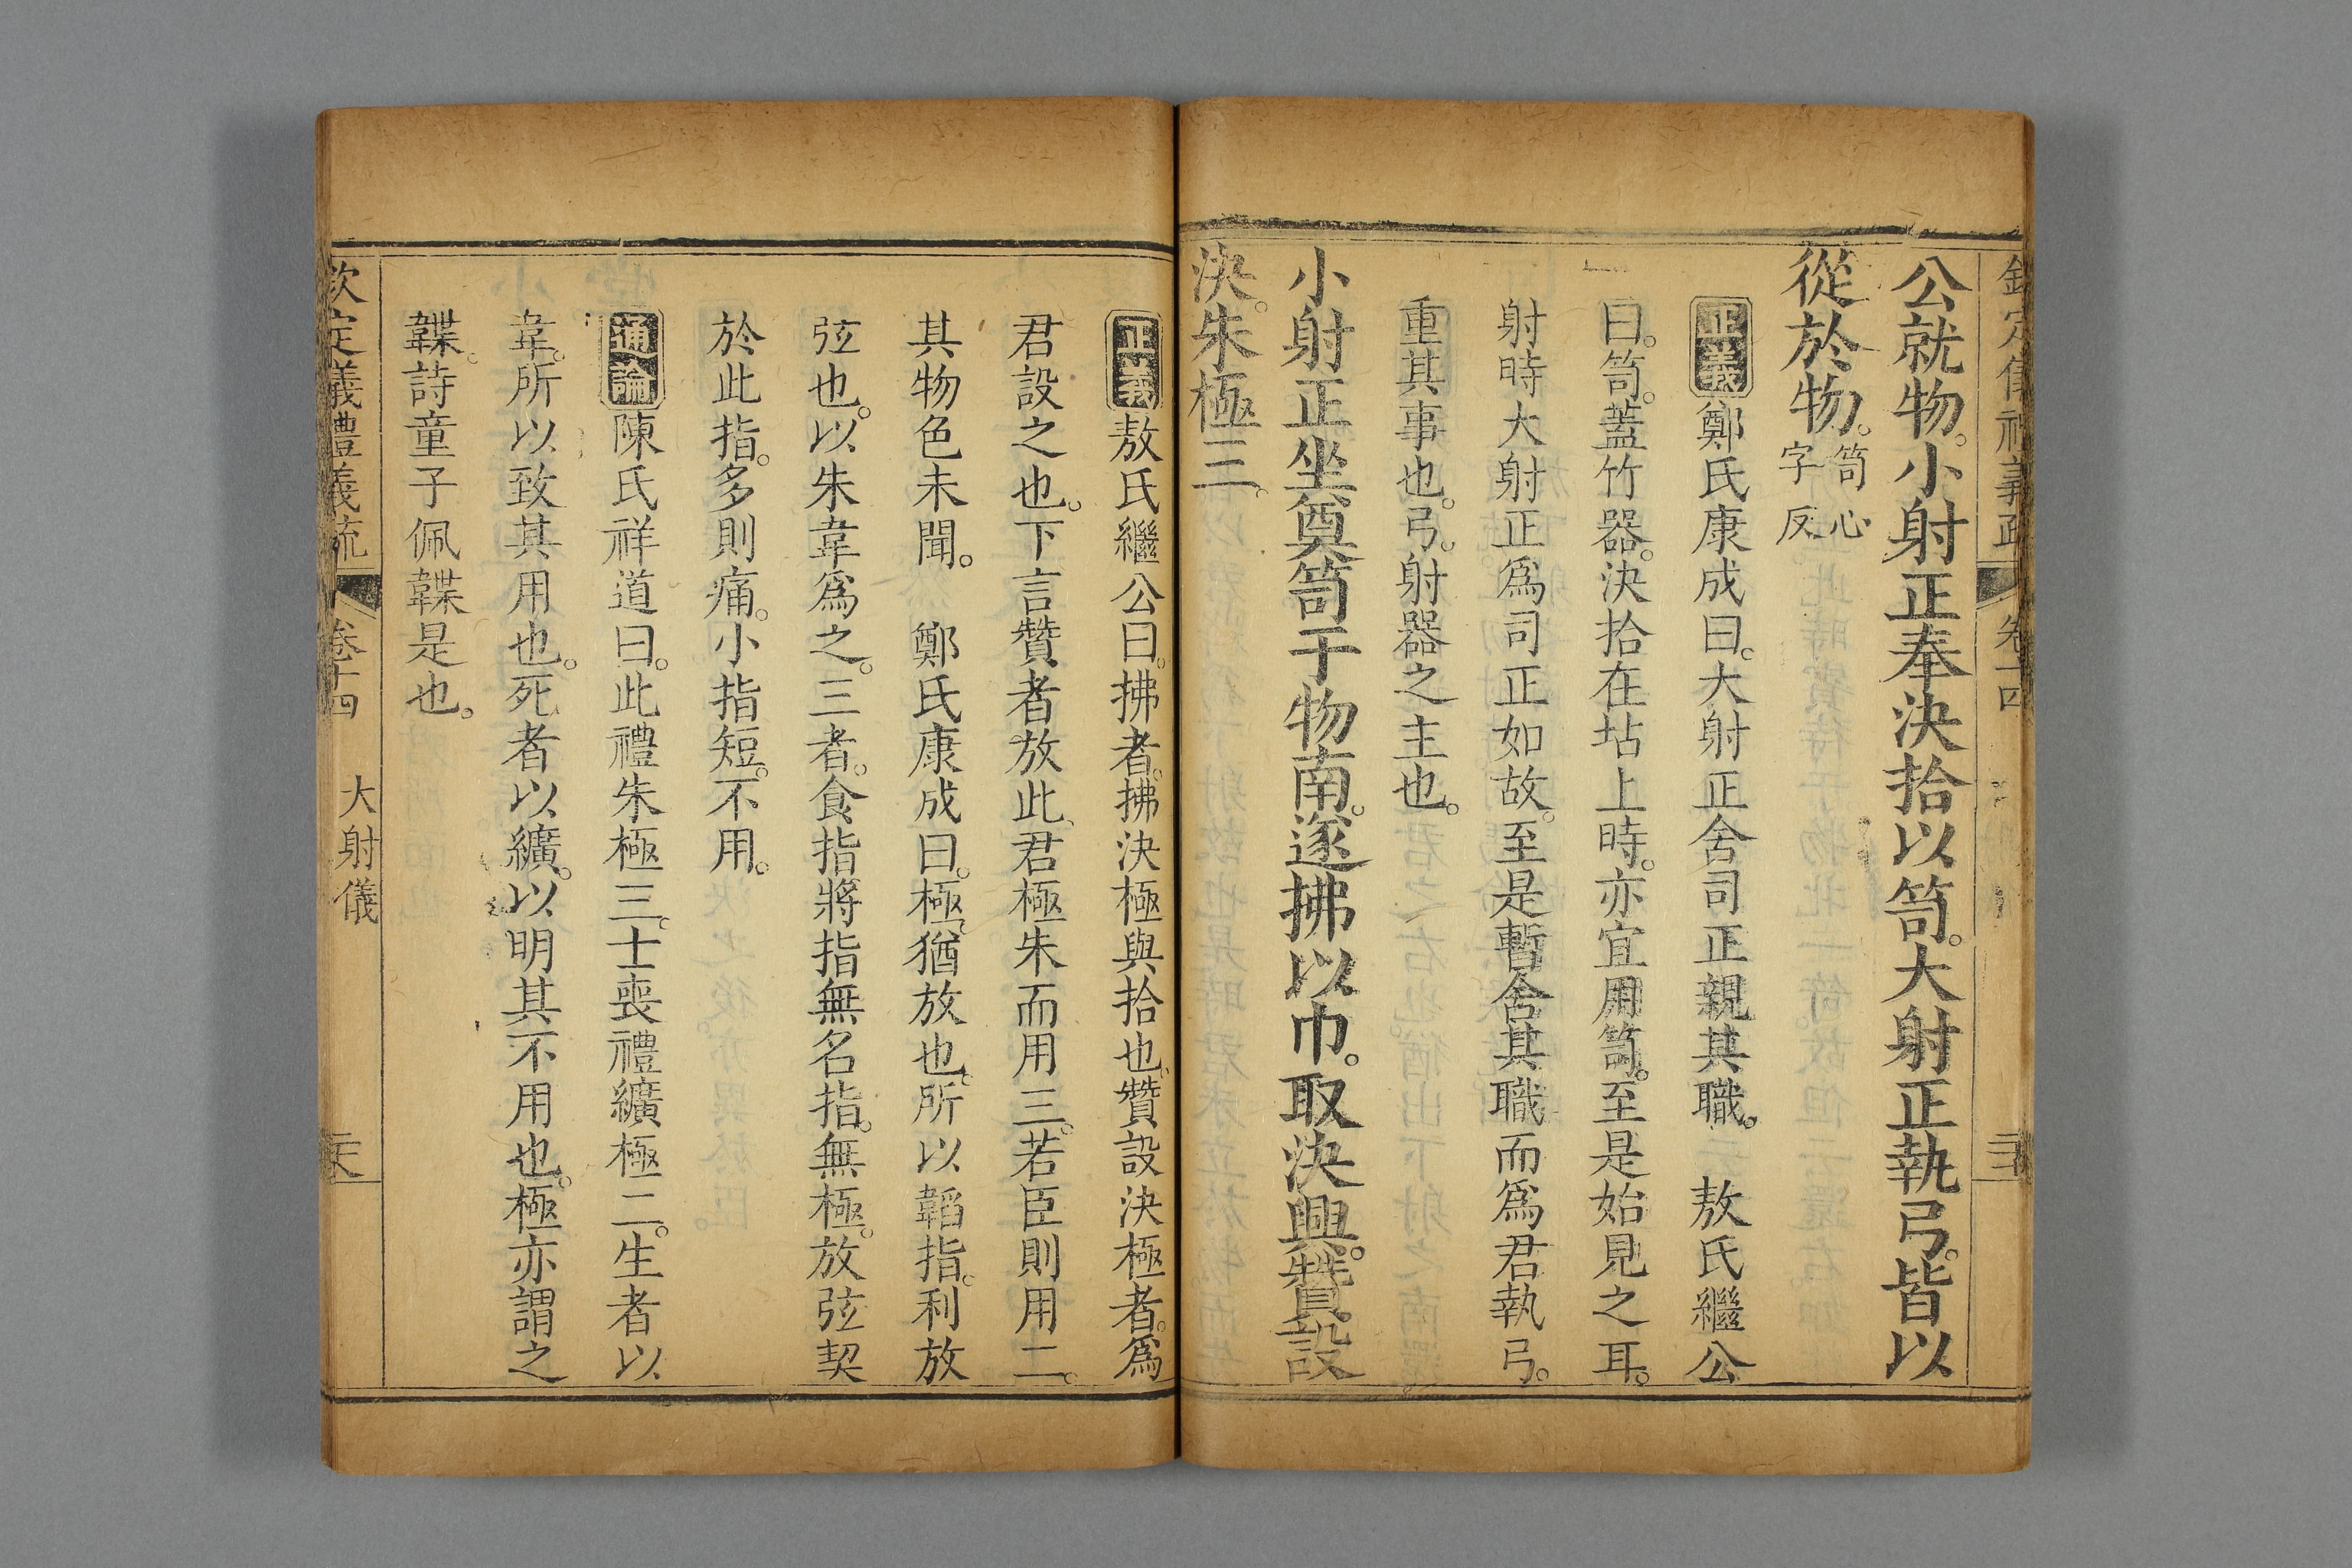 公就物。小射正奉決拾以笥。大射正執弓。皆以
從於物。笥心字反
正義鄭氏康成曰。大射正舍司正親其職。 敖氏繼公
曰。笥。蓋竹器。決拾在坫上時。亦宜用笥。至是始見之耳。
射時大射正爲司正如故。至是暫舍其職而爲君執弓。
重其事也。弓。射器之主也。
小射正坐奠笥于物南。遂拂以巾。取決興。贊設
決。朱極三。
正義敖氏繼公曰。拂者。拂決極與拾也。贊設決極者。爲
君設之也。下言贊者放此、君極朱而用三。若臣則用二。
其物色未聞。 鄭氏康成曰。極。猶放也。所以韜指。利放
弦也。以朱韋爲之。三者。食指將指無名指。無極。放弦契
於此指。多則痛。小指短。不用。
通論陳氏祥道曰。此禮朱極三。士喪禮纊極二。生者以
韋。所以致其用也。死者以纊。以明其不用也。極亦謂之
韘。詩童子佩韘是也。
欽定儀禮義疏 卷十四 大射儀